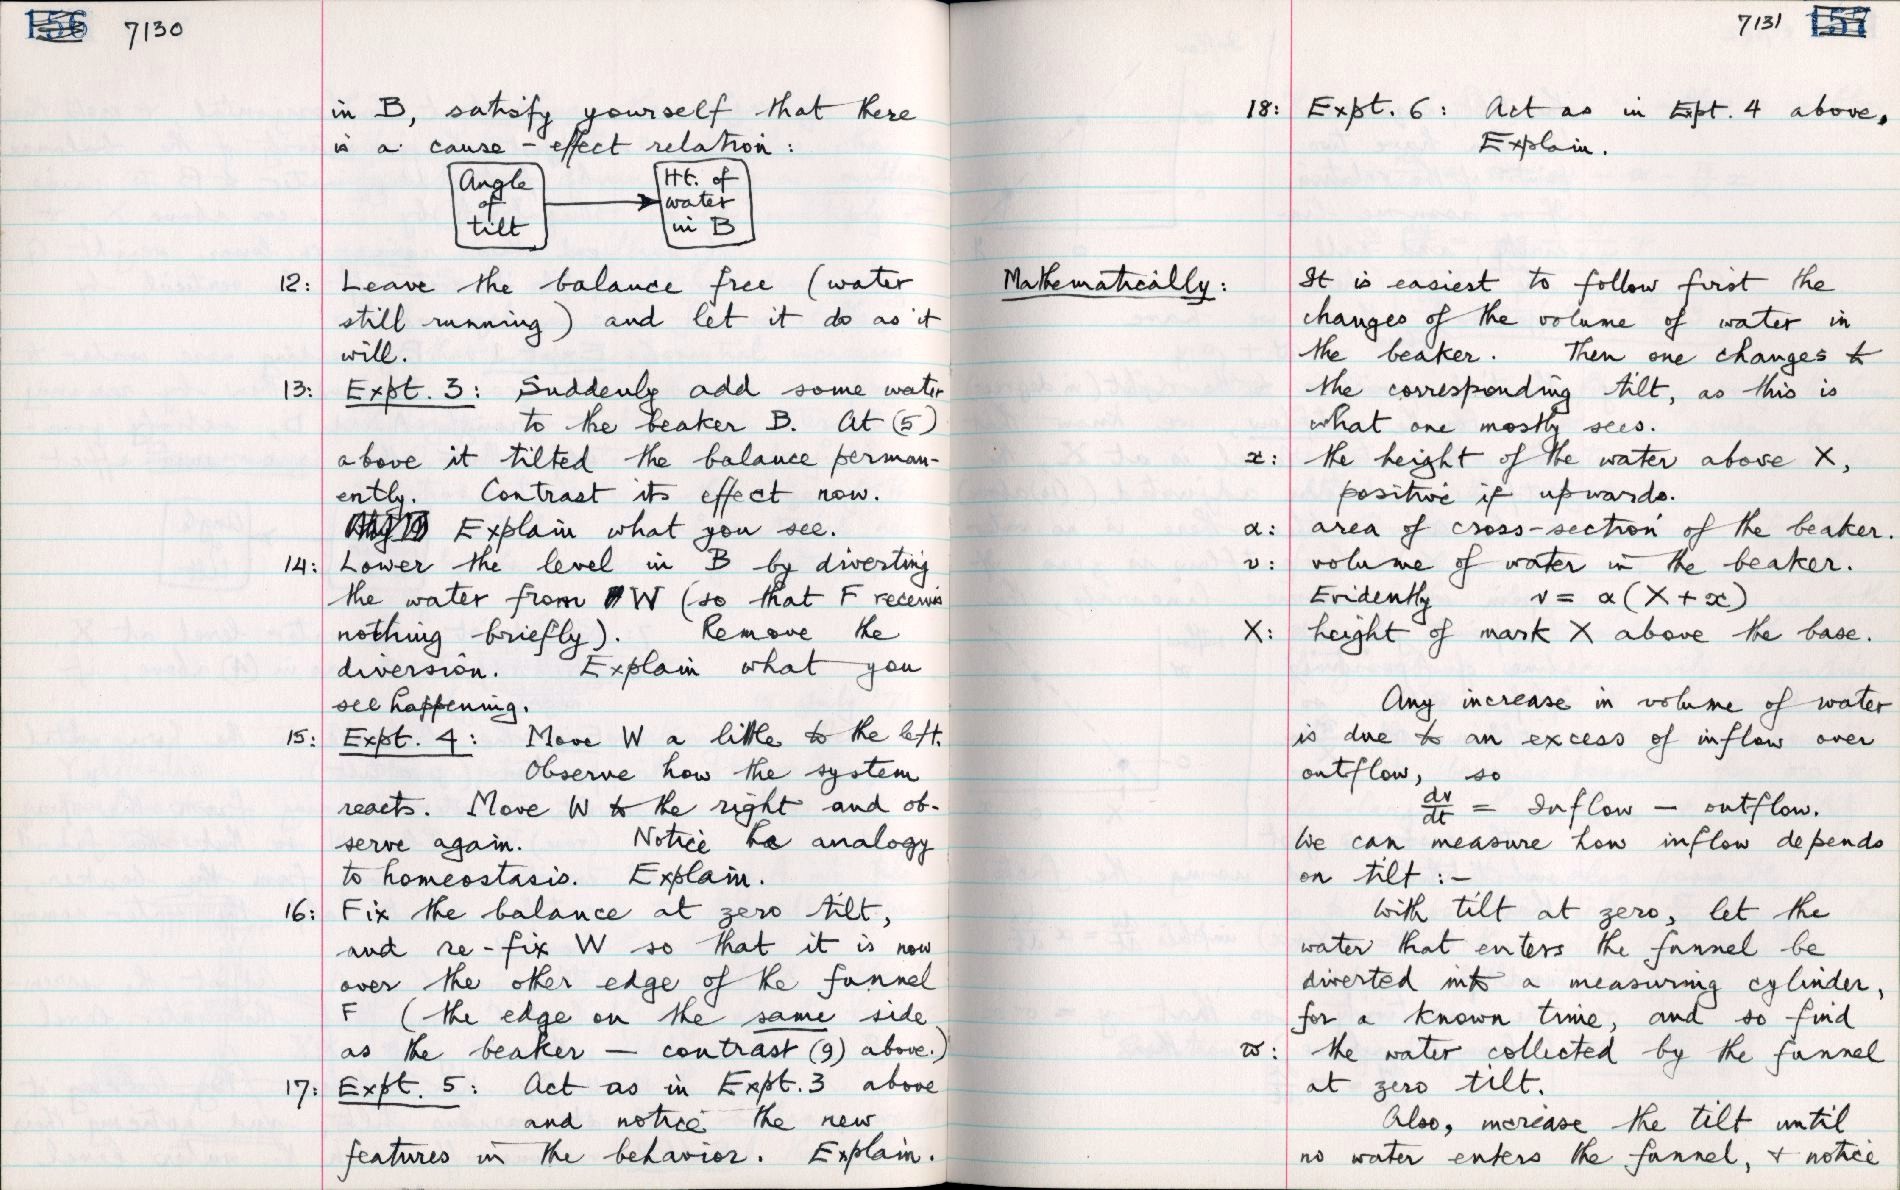 156 7130
in B, satisfy yourself that there
is a cause-effect relation:
Angle
of
tilt
Ht. of
water
in B
12: Leave the balance free (water
still running) and let it do as it
will.
13: Expt. 3: Suddenly add some water
to the beaker B. At (5)
above it tilted the balance perman-
ently. Contrast its effect now.
Explain what you see.
14: Lower the level in B by diverting
the water from W (so that F receives
nothing briefly). Remove the
diversion. Explain what you
see happening.
15: Expt. 4: Move W a little to the left.
Observe how the system
reacts. Move W to the right and ob-
serve again. Notice analogy
to homeostasis. Explain.
16: Fix the balance at zero tilt,
and re-fix W so that it is now
over the other edge of the funnel
F (the edge on the same side
as the beaker — contrast (9) above.)
17: Expt. 5: Act as in Expt. 3 above
and notice the new
features in the behavior. Explain.
7131 157
18: Expt. 6: Act as in Expt. 4 above.
Explain.
Mathematically: It is easiest to follow first the
changes of the volume of water in
the beaker. Then one changes to
the corresponding tilt, as this is
what one mostly sees.
x: the height of the water above X,
positive if upwards.
α: area of cross-section of the beaker.
v: volume of water in the beaker.
Evidently v = α(X+x)
X: height of mark X above the base.
Any increase in volume of water
is due to an excess of inflow over
outflow, so
dv/dt = Inflow — outflow.
We can measure how inflow depends
on tilt :—
With tilt at zero, let the
water that enters the funnel be
diverted into a measuring cylinder,
for a known time, and so find
w: the water collected by the funnel
at zero tilt.
Also, increase the tilt until
no water enters the funnel, + notice